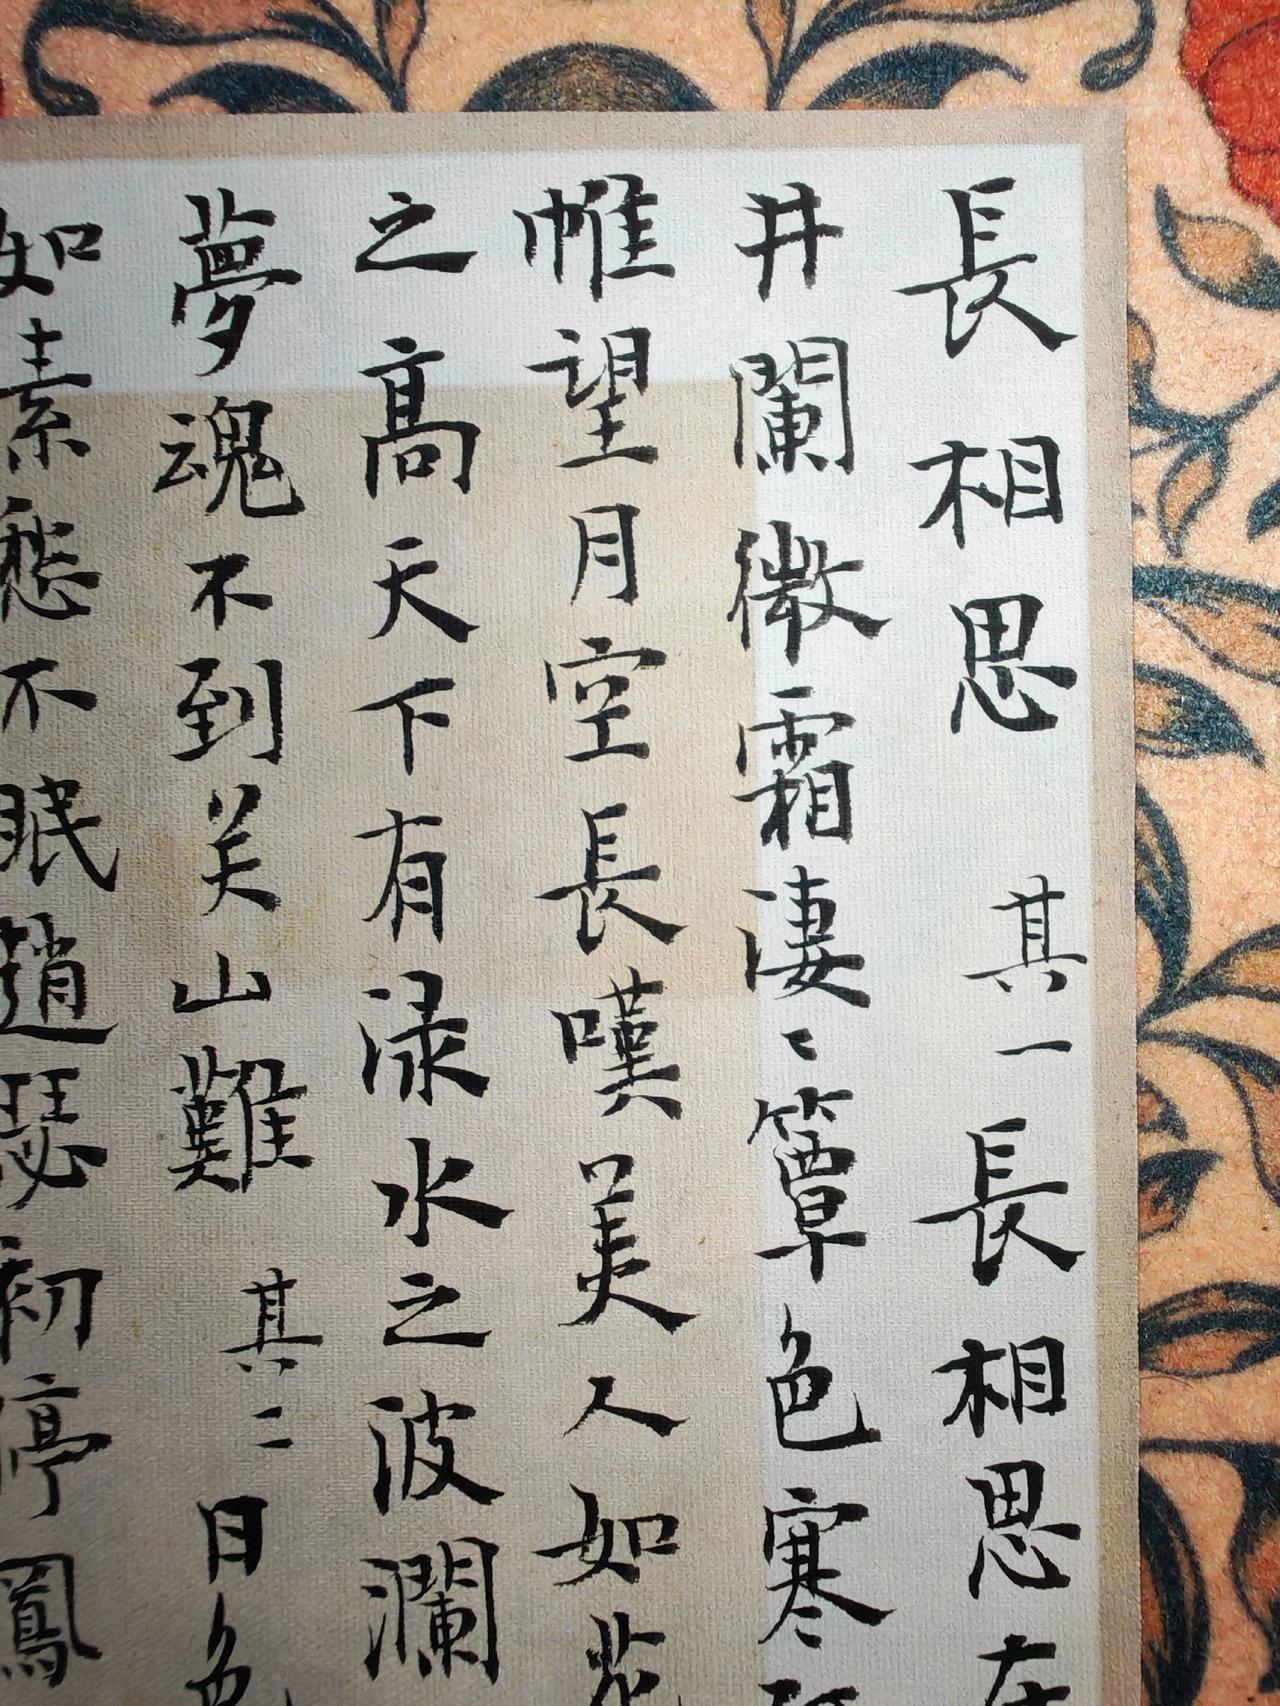 長相思 其一 長相思在
井闌微霜凄〻簟色寒孤
帷望月空長嘆美人如花
之高天下有渌水之波瀾
夢魂不到关山難 其二 日色
如素愁不眠趙瑟初停鳳